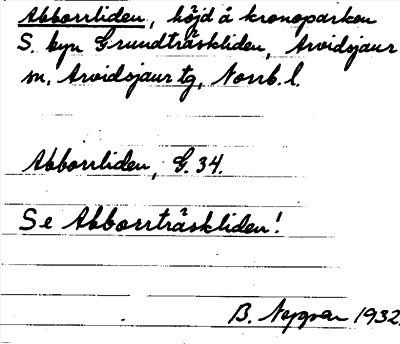 Abborrliden, höjd å kronoparken
S. kyn Grundträskliden, Arvidsjaur
m, Arvidsjaur tg, Norrb. l.
Abborrliden, G. 34.
Se Abborrträskliden!
B. 1932.